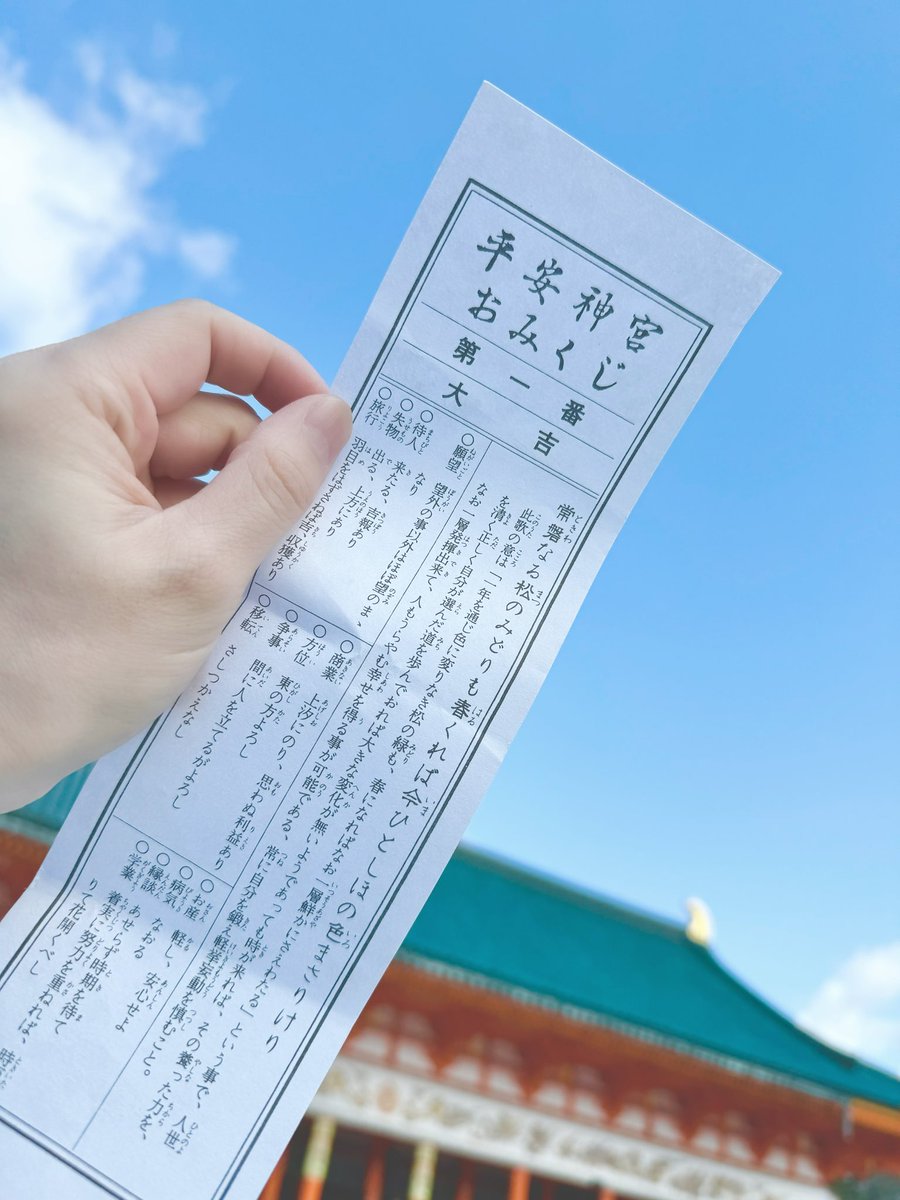 平安神宮
おみくじ
第一番
大吉
常磐なる松のみどりも春くれば今ひとしほの色まさりけり
此歌の意は「一年を通じ色に変りなき松の緑も、春になればなお一層鮮かにさえわたる」という事で、人世
を清く正しく自分が選んだ道を歩んでおれば大きな変化が無いようであっても時が来れば、その養った力を、
なお一層発揮出来て、人もうらやむ幸せを得る事が可能である、常に自分を鍛え軽挙妄動を慎むこと。
○願望 望外の事以外はほぼ望のまゝ
なり
○待人 来たる、吉報あり
○失物 出る、上方にあり
○旅行 羽目をはずさねば吉、収獲あり
○商業 上汐にのり、思わぬ利益あり
○方位 東の方よろし
○争事 間に人を立てるがよろし
○移転 さしつかえなし
○お産 軽し、安心せよ
○病気 なおる
○縁談 あせらず時期を待て
○学業 着実に努力を重ねれば、時
りて花開くべし